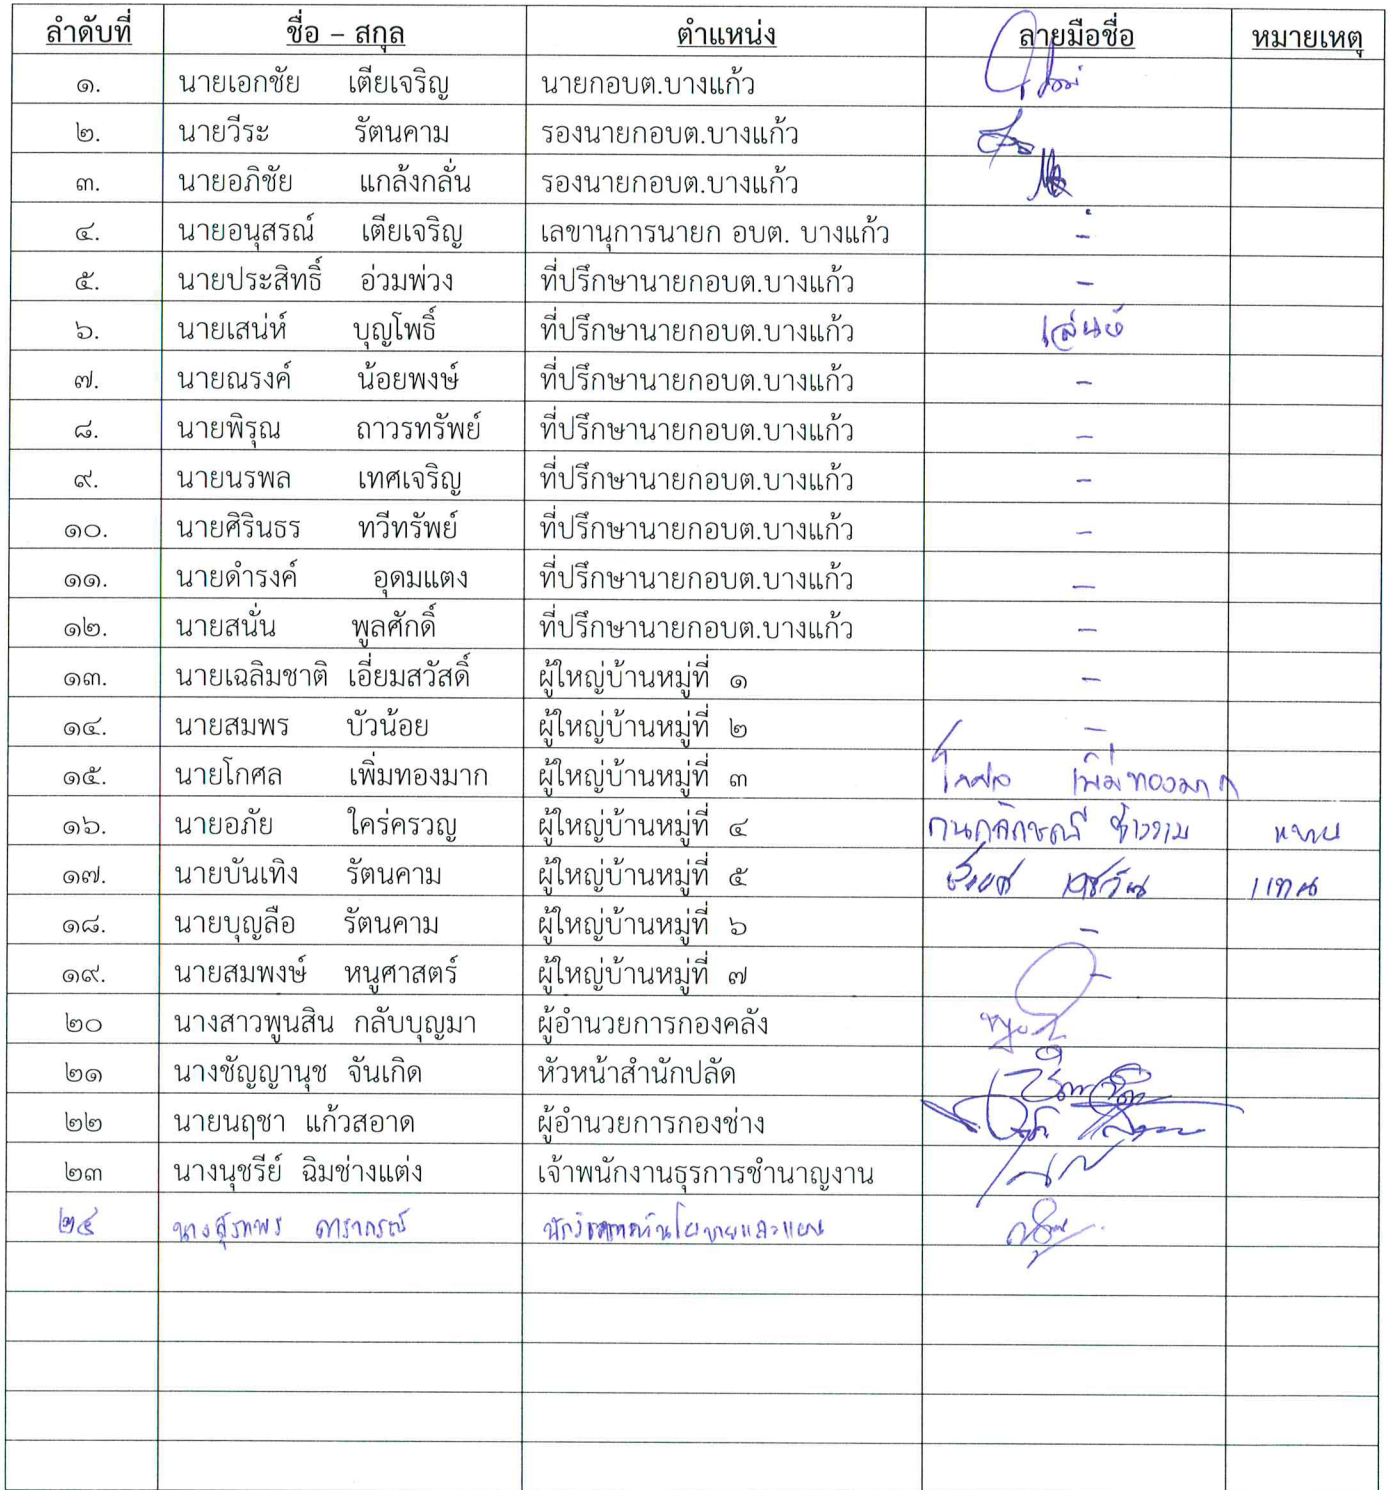 ลำดับที่ ชื่อ – สกุล ตำแหน่ง ลายมือชื่อ หมายเหตุ
๑. นายเอกชัย เตียเจริญ นายกอบต.บางแก้ว
๒. นายวีระ รัตนคาม รองนายกอบต.บางแก้ว
๓. นายอภิชัย แกล้งกลั่น รองนายกอบต.บางแก้ว
๔. นายอนุสรณ์ เตียเจริญ เลขานุการนายก อบต. บางแก้ว -
๕. นายประสิทธิ์ อ่วมพ่วง ที่ปรึกษานายกอบต.บางแก้ว -
๖. นายเสน่ห์ บุญโพธิ์ ที่ปรึกษานายกอบต.บางแก้ว เสน่ห์
๗. นายณรงค์ น้อยพงษ์ ที่ปรึกษานายกอบต.บางแก้ว -
๘. นายพิรุณ ถาวรทรัพย์ ที่ปรึกษานายกอบต.บางแก้ว -
๙. นายนรพล เทศเจริญ ที่ปรึกษานายกอบต.บางแก้ว -
๑๐. นายศิรินธร ทวีทรัพย์ ที่ปรึกษานายกอบต.บางแก้ว -
๑๑. นายดำรงค์ อุดมแตง ที่ปรึกษานายกอบต.บางแก้ว -
๑๒. นายสนั่น พูลศักดิ์ ที่ปรึกษานายกอบต.บางแก้ว -
๑๓. นายเฉลิมชาติ เอี่ยมสวัสดิ์ ผู้ใหญ่บ้านหมู่ที่ ๑ -
๑๔. นายสมพร บัวน้อย ผู้ใหญ่บ้านหมู่ที่ ๒ -
๑๕. นายโกศล เพิ่มทองมาก ผู้ใหญ่บ้านหมู่ที่ ๓ โกศล เพิ่มทองมาก
๑๖. นายอภัย ใคร่ครวญ ผู้ใหญ่บ้านหมู่ที่ ๔ แทน
๑๗. นายบันเทิง รัตนคาม ผู้ใหญ่บ้านหมู่ที่ ๕ แทน
๑๘. นายบุญลือ รัตนคาม ผู้ใหญ่บ้านหมู่ที่ ๖ -
๑๙. นายสมพงษ์ หนูศาสตร์ ผู้ใหญ่บ้านหมู่ที่ ๗ -
๒๐ นางสาวพูนสิน กลับบุญมา ผู้อำนวยการกองคลัง
๒๑ นางชัญญานุช จันเกิด หัวหน้าสำนักปลัด
๒๒ นายนฤชา แก้วสอาด ผู้อำนวยการกองช่าง
๒๓ นางนุชรีย์ ฉิมช่างแต่ง เจ้าพนักงานธุรการชำนาญงาน
๒๔ นาง นักวิเคราะห์นโยบายและแผน